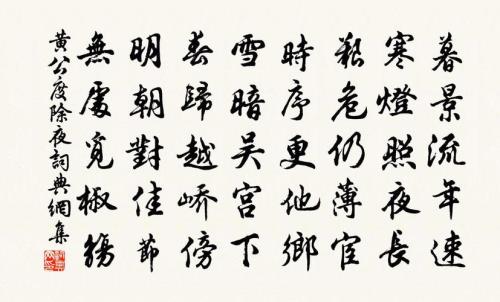 暮景流年速
寒燈照夜長
艱危仍薄宦
時序更他鄉
雪暗吴宫下
春歸越嶠傍
明朝對佳節
無處覓椒觴
黄公度除夜詞典網集